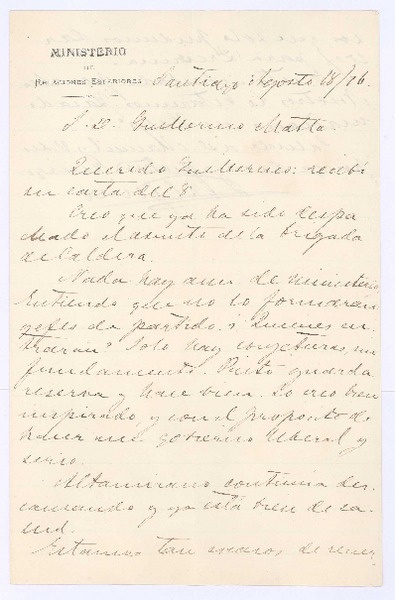 MINISTERIO
DE
RELACIONES ESTERIORES
Santiago Agosto 18/76.
S. D. Guillermo Matta
Querido Guillermo: recibí
su carta del 8.
Creo que ya ha sido despa
chado el asunto de la brigada
de Caldera.
Nada hay aun de ministerio
Entiendo que no lo formarán
gefes de partido. ¿Quienes en
trarán? Solo hay conjeturas, sin
fundamento. Pinto guarda
reserva y hace bien. Lo creo bien
inspirado, y con el proposito de
hacer un gobierno liberal y
serio.
Altamirano continúa des
cansando y ya está bien de sa
lud.
Estamos tan escasos de